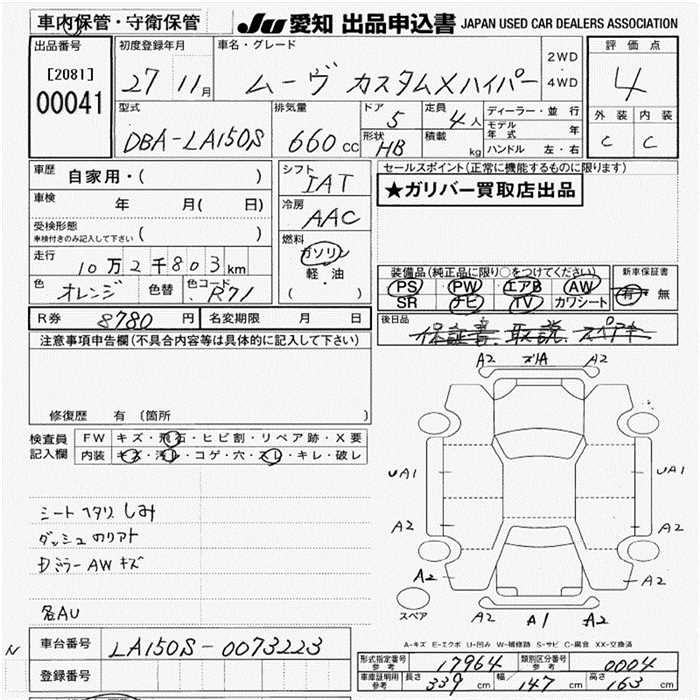 車内保管・守衛保管 JU 愛知 出品申込書 JAPAN USED CAR DEALERS ASSOCIATION
出品番号 [2081] 00041
初度登録年月 27 11月
車名・グレード ムーヴ カスタムXハイパー 2WD・4WD
評価点 4
外装 C 内装 C
型式 DBA-LA150S
排気量 660cc
ドア 5 定員 4人
形状 HB 積載 kg
ディーラー・並行
モデル年式 年
ハンドル 左・右
車歴 自家用・( )
シフト IAT
セールスポイント(正常に機能するものに限ります)
★ガリバー買取店出品
車検 年 月( 日)
冷房 AAC
受検形態 車検付きのみ記入して下さい ( )
燃料 ガソリン 軽・油 ( )
走行 10万2千803km
色 オレンジ 色替 色コード R71
装備品(純正品に限り○をつけてください) 新車保証書
PS PW エアB AW 有・無
SR ナビ TV カワシート
R券 8780円 名変期限 月 日
後日品 保証書 取説 スペアキー
注意事項申告欄(不具合内容等は具体的に記入して下さい)
修復歴 有 (箇所 )
検査員記入欄 FW キズ・飛石・ヒビ割・リペア跡・X要
内装 キズ・汚レ・コゲ・穴・スレ・キレ・破レ
シートヘタリ しみ
ダッシュのリアト
Dミラー AW キズ
各AU
A2 A2
UA1 UA1
A2 A2
A2 A2
A2 A1 A2
スペア
A-キズ E-エクボ U-凹み W-補修跡 S-サビ C-腐食 XX-交換済
N
車台番号 LA150S-0073223
登録番号
形式指定番号 参考 17964 類別区分番号 参考 0004
車庫証明用 参考 長さ 339cm 幅 147cm 高さ 163cm